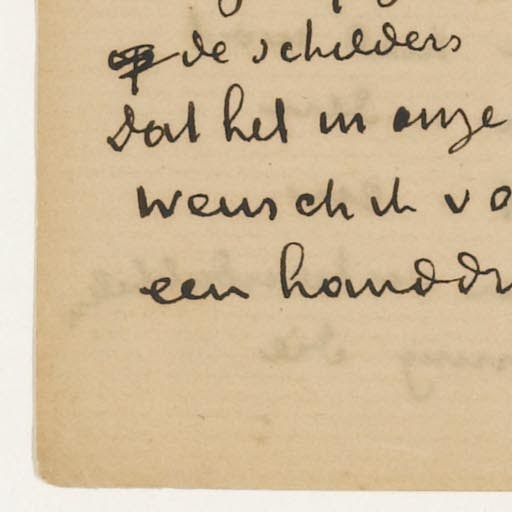 de schilders
Dat het in onze
wensch ik vo
een handdr